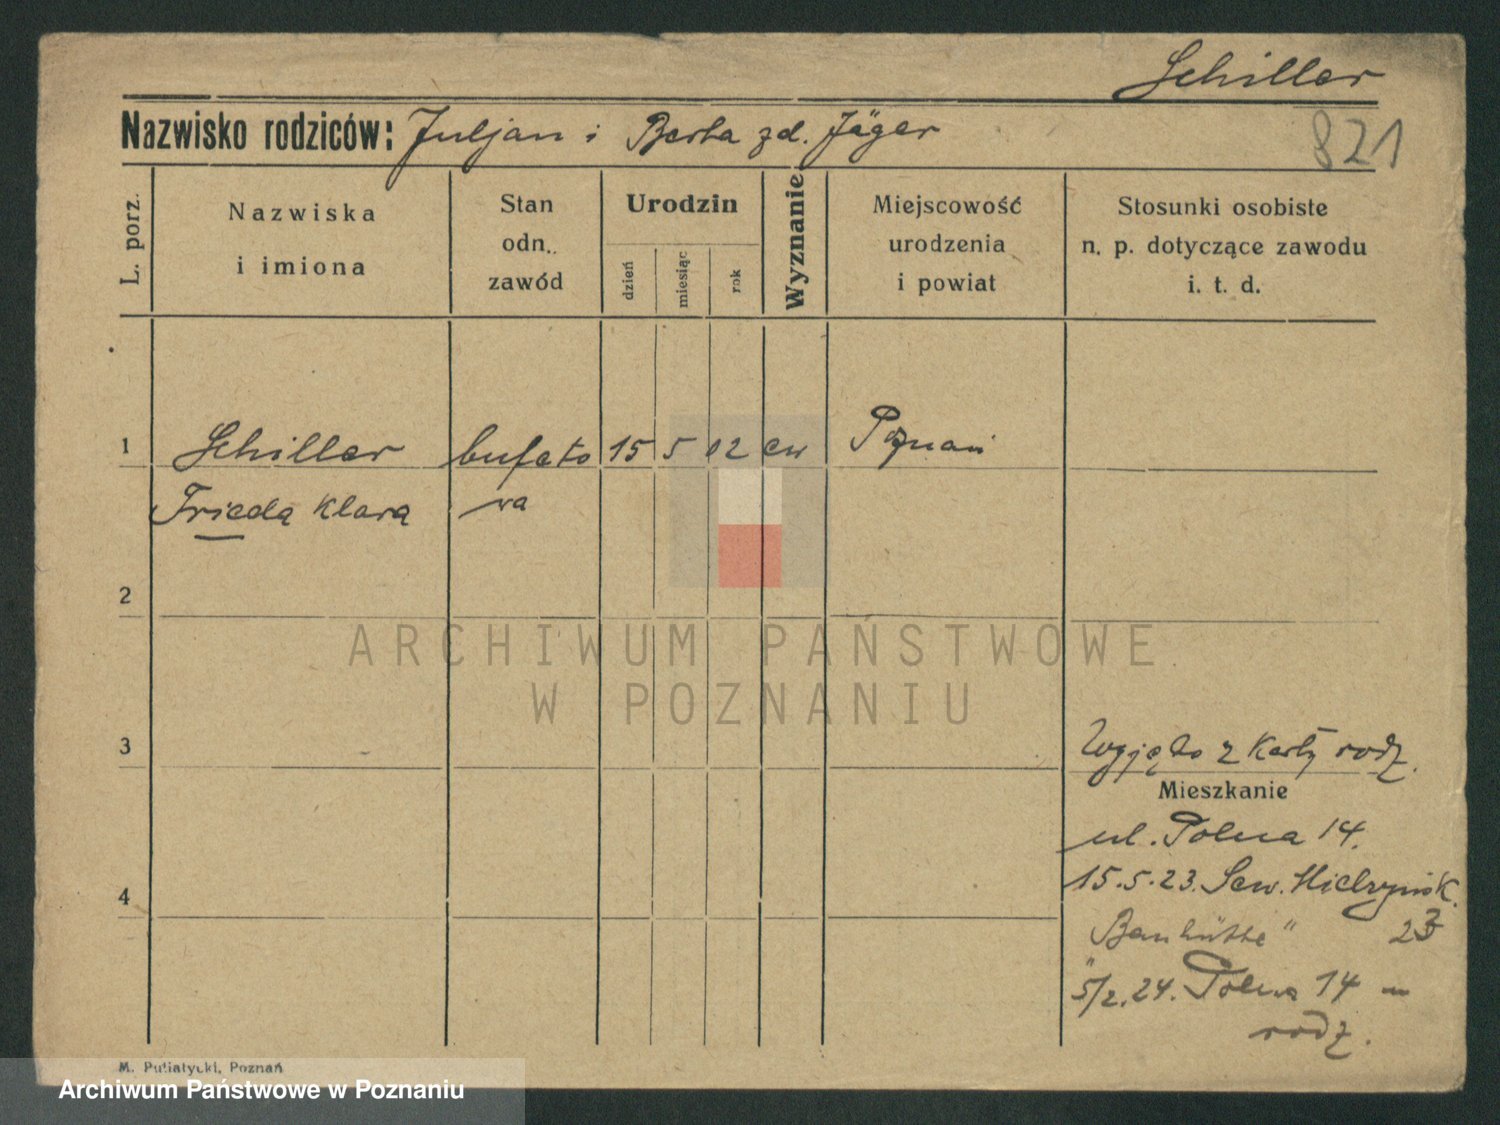 Schiller
Nazwisko rodziców: Juljan i Berta zd. Jäger
821
L. porz.
Nazwiska
i imiona
Stan
odn.
zawód
Urodzin
dzień
miesiąc
rok
Wyznanie
Miejscowość
urodzenia
i powiat
Stosunki osobiste
n. p. dotyczące zawodu
i. t. d.
1
Schiller
bufeto
15
5
02
ew
Poznań
Frieda Klara
wa
2
ARCHIWUM PAŃSTWOWE
W POZNANIU
3
Wyjęto z Karty rodz.
Mieszkanie
ul. Polna 14.
4
15.5.23. Sew. Mielżyńsk.
23
5/2.24. Polna 14 u
rodz.
M. Putiatycki, Poznań
Archiwum Państwowe w Poznaniu